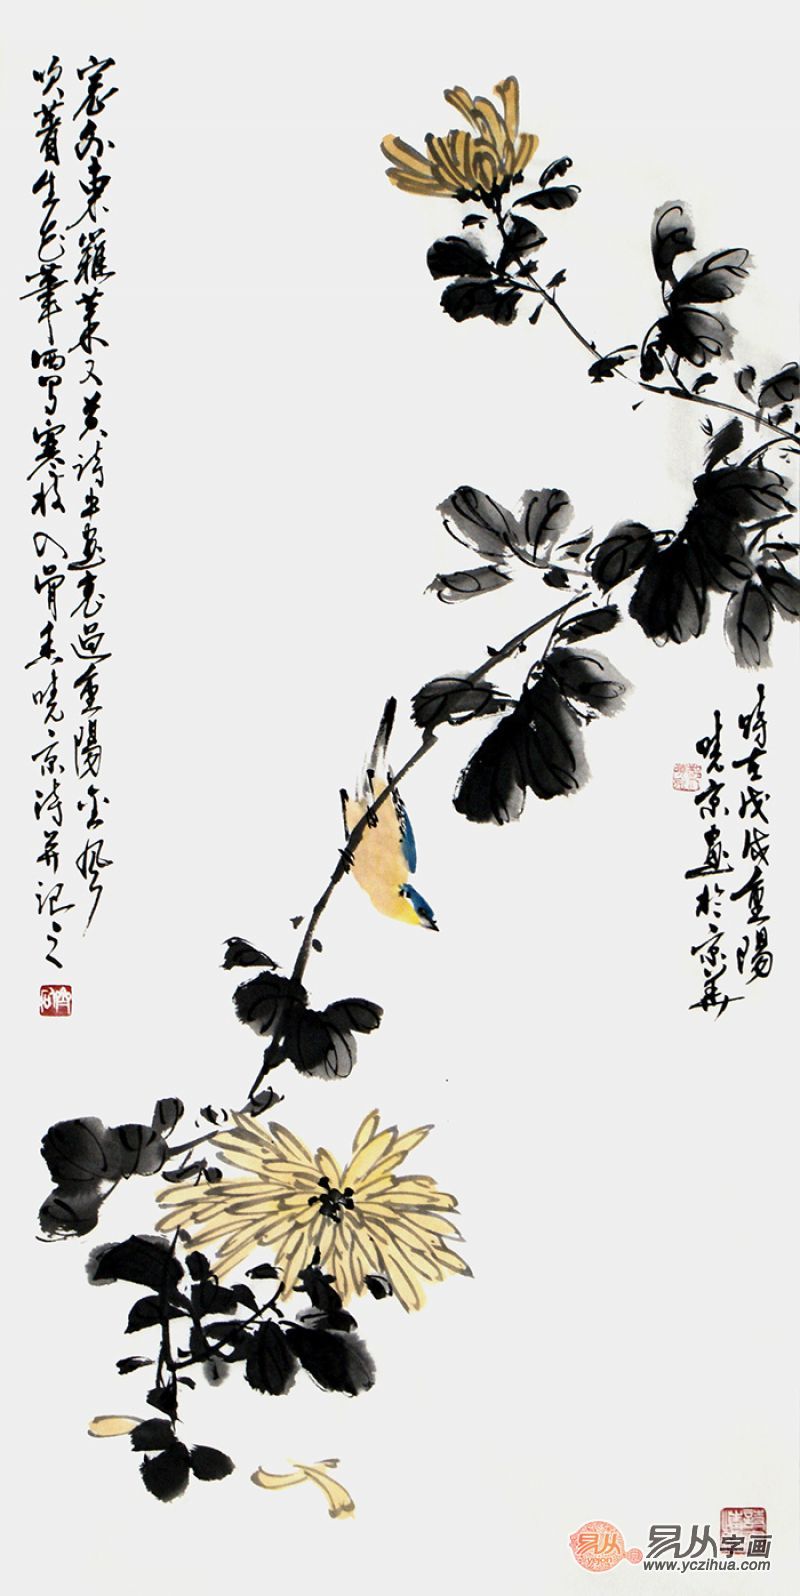 窗外東籬菊又黃詩中畫裏過重陽金風
吹著生花筆洒写寒枝入骨香曉京詩并記之
時在戊戌重陽
曉京畫於京華
易从
yejon
易从字画
www.yczihua.com